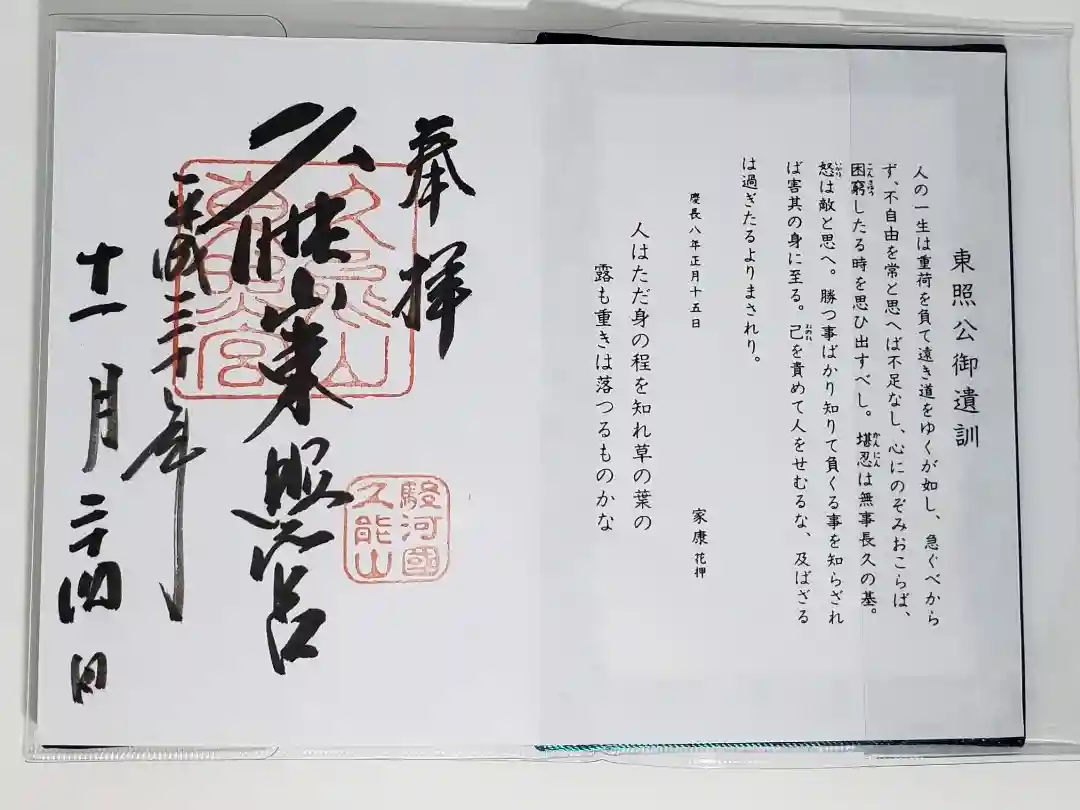 東照公御遺訓
人の一生は重荷を負て遠き道をゆくが如し、急ぐべから
ず、不自由を常と思へば不足なし、心にのぞみおこらば、
困窮したる時を思ひ出すべし。堪忍は無事長久の基。
こんきゅう
かんにん
怒は敵と思へ。勝つ事ばかり知りて負くる事を知らざれ
いかり
ば害其の身に至る。己を責めて人をせむるな、及ばざる
おのれ
は過ぎたるよりまされり。
慶長八年正月十五日
家康花押
人はただ身の程を知れ草の葉の
露も重きは落つるものかな
奉拝
久能山東照宮
久能山
東照宮
駿河國
久能山
平成三十年
十一月二十四日